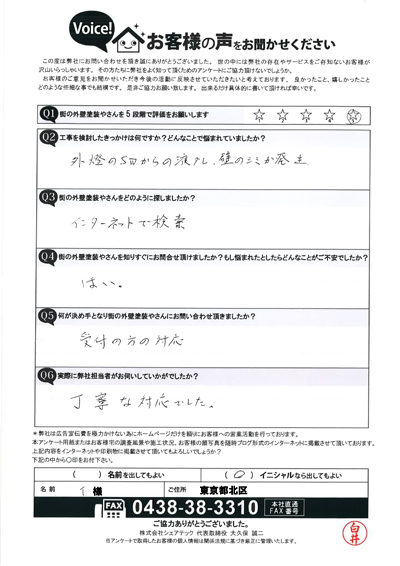 Voice!
お客様の声をお聞かせください
この度は弊社にお問い合わせを頂き誠にありがとうございました。世の中には弊社の存在やサービスをご存知ないお客様が
沢山いらっしゃいます。その方たちに弊社をよく知って頂くためのアンケートにご協力頂けないでしょうか。
お客様のご意見をお聞かせいただき今後の活動に反映させていただきたいと考えております。良かったこと、嬉しかったこと
どのような些細な事でも結構です。是非ご協力お願い致します。出来るだけ具体的に書いて頂ければ幸いです。
Q1 街の外壁塗装やさんを5段階で評価をお願いします ☆ ☆ ☆ ☆ ☆
Q2 工事を検討したきっかけは何ですか?どんなことで悩まれていましたか?
外燈の からの液ダレ、壁のシミが発生
Q3 街の外壁塗装やさんをどのように探しましたか?
インターネットで検索
Q4 街の外壁塗装やさんを知りすぐにお問合せ頂けましたか?もし悩まれたとしたらどんなことがご不安でしたか?
はい。
Q5 何が決め手となり街の外壁塗装やさんにお問い合わせ頂きましたか?
受付の方の対応
Q6 実際に弊社担当者がお伺いしていかがでしたか?
丁寧な対応でした。
*弊社は広告宣伝費を極力かけない為にホームページだけを頼りにお客様への営業活動を行っております。
本アンケート用紙またはお客様宅の調査風景や施工状況、お客様の顔写真を随時ブログ形式のインターネットに掲載させて頂いております。
上記内容をインターネットや印刷物に掲載させて頂いてもよろしいでしょうか?
下記の中から〇印をお付下さい。
( ) 名前を出してもよい ( 〇 ) イニシャルなら出してもよい
名前 I 様 ご住所 東京都北区
FAX 0438-38-3310 本社直通 FAX番号
ご協力ありがとうございました。
株式会社シェアテック 代表取締役 大久保 誠二
※アンケートで取得したお客様の個人情報は関係法規に基づき厳正に管理いたします。
白井